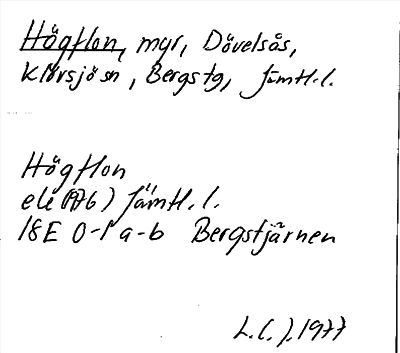 Högflon, myr, Dövelsås,
Klövsjö sn, Bergs tg, Jämtl. l.
Högflon
ek (1976) Jämtl. l.
18E 0-1 a-b Bergstjärnen
L. C. J. 1977